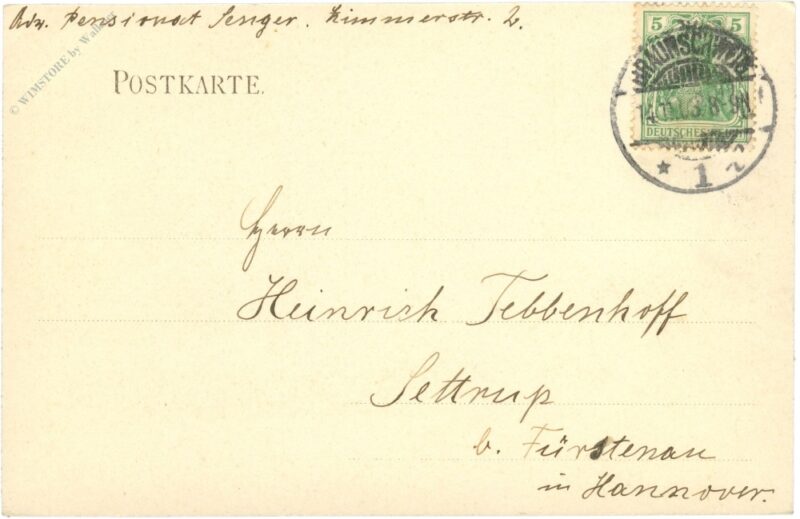 Adr. Pensionat Senger. Zimmerstr. 2.
© WIMSTORE by
POSTKARTE.
5 5
BRAUNSCHWEIG
8-9N.
DEUTSCHES
* 1
Herrn
Heinrich Tebbenhoff
Settrup
b. Fürstenau
in Hannover.